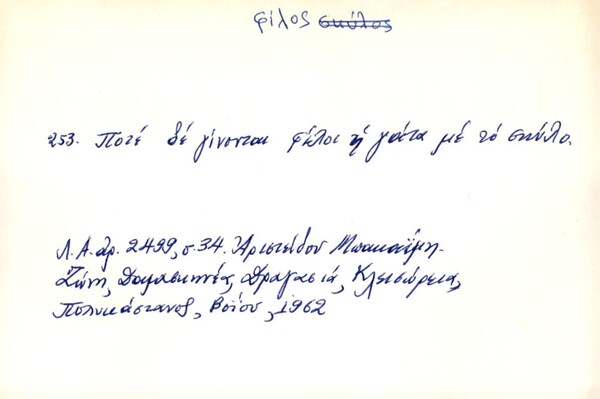 φίλος σκύλος
253. Ποτέ δέ γίνονται φίλοι ἡ γάτα μέ τό σκύλο.
Λ.Α. ἀρ. 2499, σ.34. Ἀριστείδου Μπακαΐμη-
Ζώνη, Δαμασκηνέα, Δραγασιά, Κλεισώρεια,
Πολυκάστανος, Βοΐου, 1962